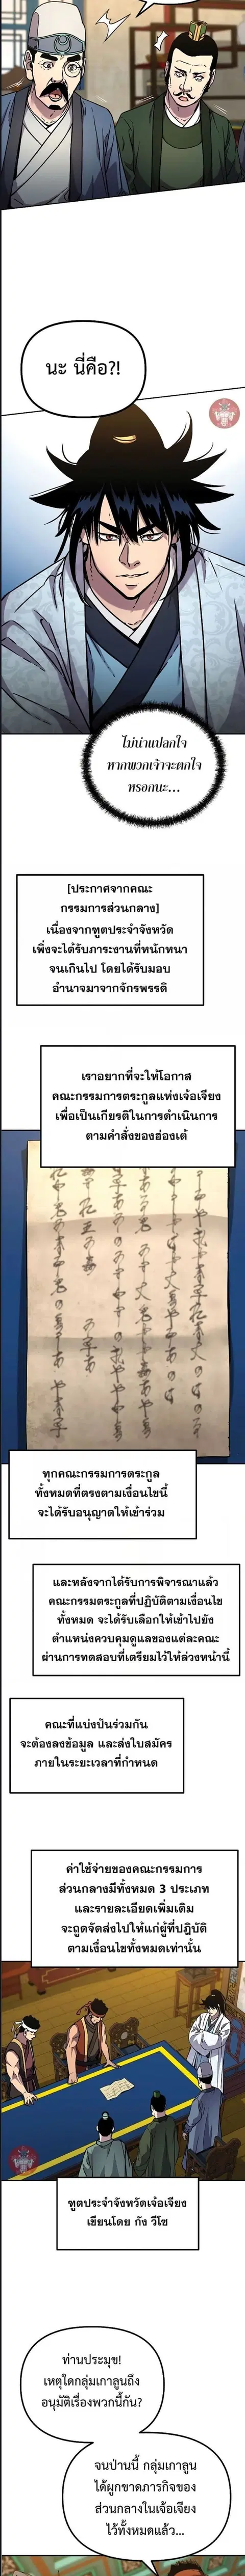 นะ นี่คือ?!
ไม่น่าแปลกใจ
หากพวกเจ้าจะตกใจ
หรอกนะ...
[ประกาศจากคณะ
กรรมการส่วนกลาง]
เนื่องจากฑูตประจำจังหวัด
เพิ่งจะได้รับภาระงานที่หนักหนา
จนเกินไป โดยได้รับมอบ
อำนาจมาจากจักรพรรดิ
เราอยากที่จะให้โอกาส
คณะกรรมการตระกูลแห่งเจ้อเจียง
เพื่อเป็นเกียรติในการดำเนินการ
ตามคำสั่งของฮ่องเต้
ทุกคณะกรรมการตระกูล
ทั้งหมดที่ตรงตามเงื่อนไขนี้
จะได้รับอนุญาตให้เข้าร่วม
และหลังจากได้รับการพิจารณาแล้ว
คณะกรรมตระกูลที่ปฏิบัติตามเงื่อนไข
ทั้งหมด จะได้รับเลือกให้เข้าไปยัง
ตำแหน่งควบคุมดูแลของแต่ละคณะ
ผ่านการทดสอบที่เตรียมไว้ให้ล่วงหน้านี้
คณะที่แบ่งปันร่วมกัน
จะต้องลงข้อมูล และส่งใบสมัคร
ภายในระยะเวลาที่กำหนด
ค่าใช้จ่ายของคณะกรรมการ
ส่วนกลางมีทั้งหมด 3 ประเภท
และรายละเอียดเพิ่มเติม
จะถูดจัดส่งไปให้แก่ผู้ที่ปฎิบัติ
ตามเงื่อนไขทั้งหมดเท่านั้น
ฑูตประจำจังหวัดเจ้อเจียง
เขียนโดย กัง วีโซ
ท่านประมุข!
เหตุใดกลุ่มเกาลูนถึง
อนุมัติเรื่องพวกนี้กัน?
จนป่านนี้ กลุ่มเกาลูน
ได้ผูกขาดภารกิจของ
ส่วนกลางในเจ้อเจียง
ไว้ทั้งหมดแล้ว...